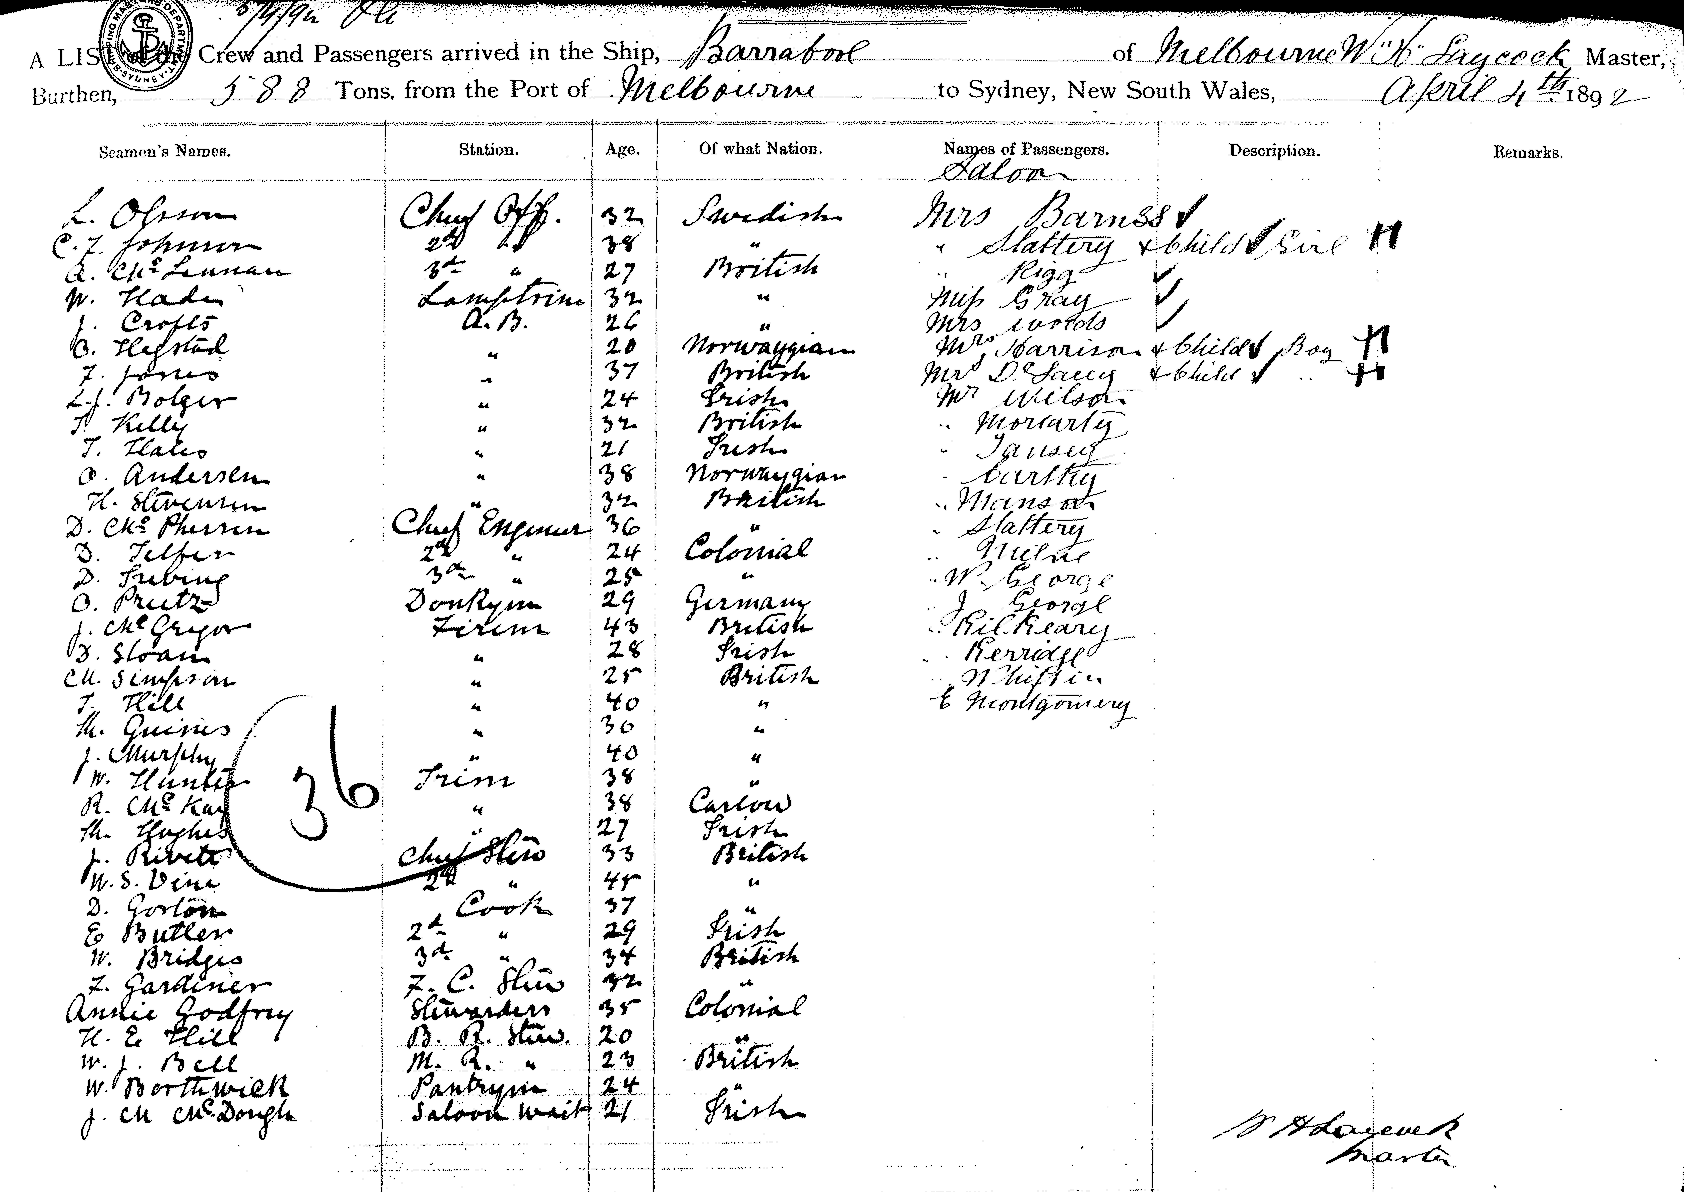 5/4/92
A LIST of the Crew and Passengers arrived in the Ship, Barrabool of Melbourne W. H. Laycock Master,
Burthen, 588 Tons, from the Port of Melbourne to Sydney, New South Wales, April 4th 1892
Seamen's Names. Station. Age. Of what Nation. Names of Passengers. Description. Remarks.
Saloon
L. Olsson Chief Off. 32 Swedish Mrs Barnes
C. F. Johnson 2nd " 38 " " Slattery & Child Girl
A. McLennan 3rd " 27 British " Rigg
W. Lamptrim 32 " Miss Gray
J. Crofts A.B. 26 " Mrs Woods
O. Hegstad " 20 Norwaygian Mrs Harrison & Child Boy
F. Jones " 37 British Mrs De Lacey & Child "
L. J. Bolger " 24 Irish Mr Wilson
T. Kelly " 32 British " Moriarty
T. Hales " 21 Irish " Tansey
O. Andersen " 38 Norwaygian " Carthy
H. Stevensen " 32 British " Manson
D. McPherson Chief Engineer 36 " " Slattery
D. Telfer 2nd " 24 Colonial " Milne
D. 3rd " 25 " " W. George
O. Preetz Donkeym 29 Germany J George
J. McGregor Firem 43 British " Kilkeary
D. Sloan " 28 Irish " Kerridge
M. Simpson " 25 British " Whiffin
T. Hill " 40 " E Montgomery
M. Guines " 30 "
J. Murphy " 40 "
W. Hunter Trim 38 "
R. McKay " 38 Carlow
M. Hughes " 27 Irish
J. Rivett Chief Stew 33 British
W. S. Vine 2nd " 45 "
D. Gorton Cook 37 "
E Butler 2d " 29 Irish
W. Bridges 3d " 34 British
F. Gardiner F. C. Stew 32 "
Annie Godfrey Stewardess 35 Colonial
H. E Hill B. R. Stew. 20 "
W. J. Bell M. R. " 23 British
W. Borthwick Pantrym 24 "
J. M McDongh Saloon Wait 21 Irish
36
W H Laycock
Master